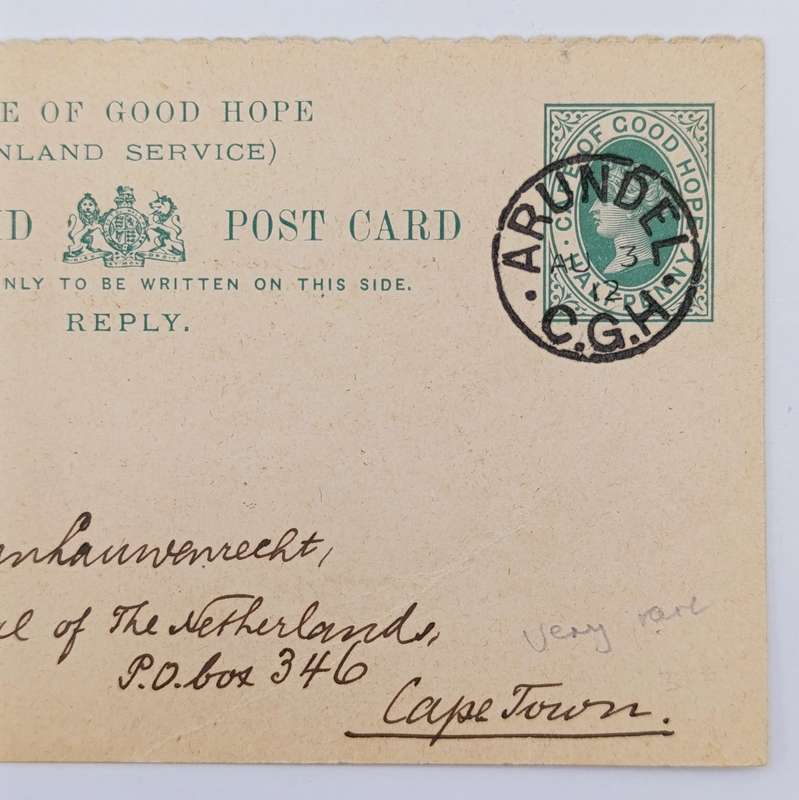 E OF GOOD HOPE
NLAND SERVICE)
ID POST CARD
NLY TO BE WRITTEN ON THIS SIDE.
REPLY.
CAPE OF GOOD HOPE
HALF PENNY
ARUNDEL
AU 3
12
C.G.H.
anhauwenrecht,
ul of The Netherlands,
P.O. box 346
Cape Town.
very rare